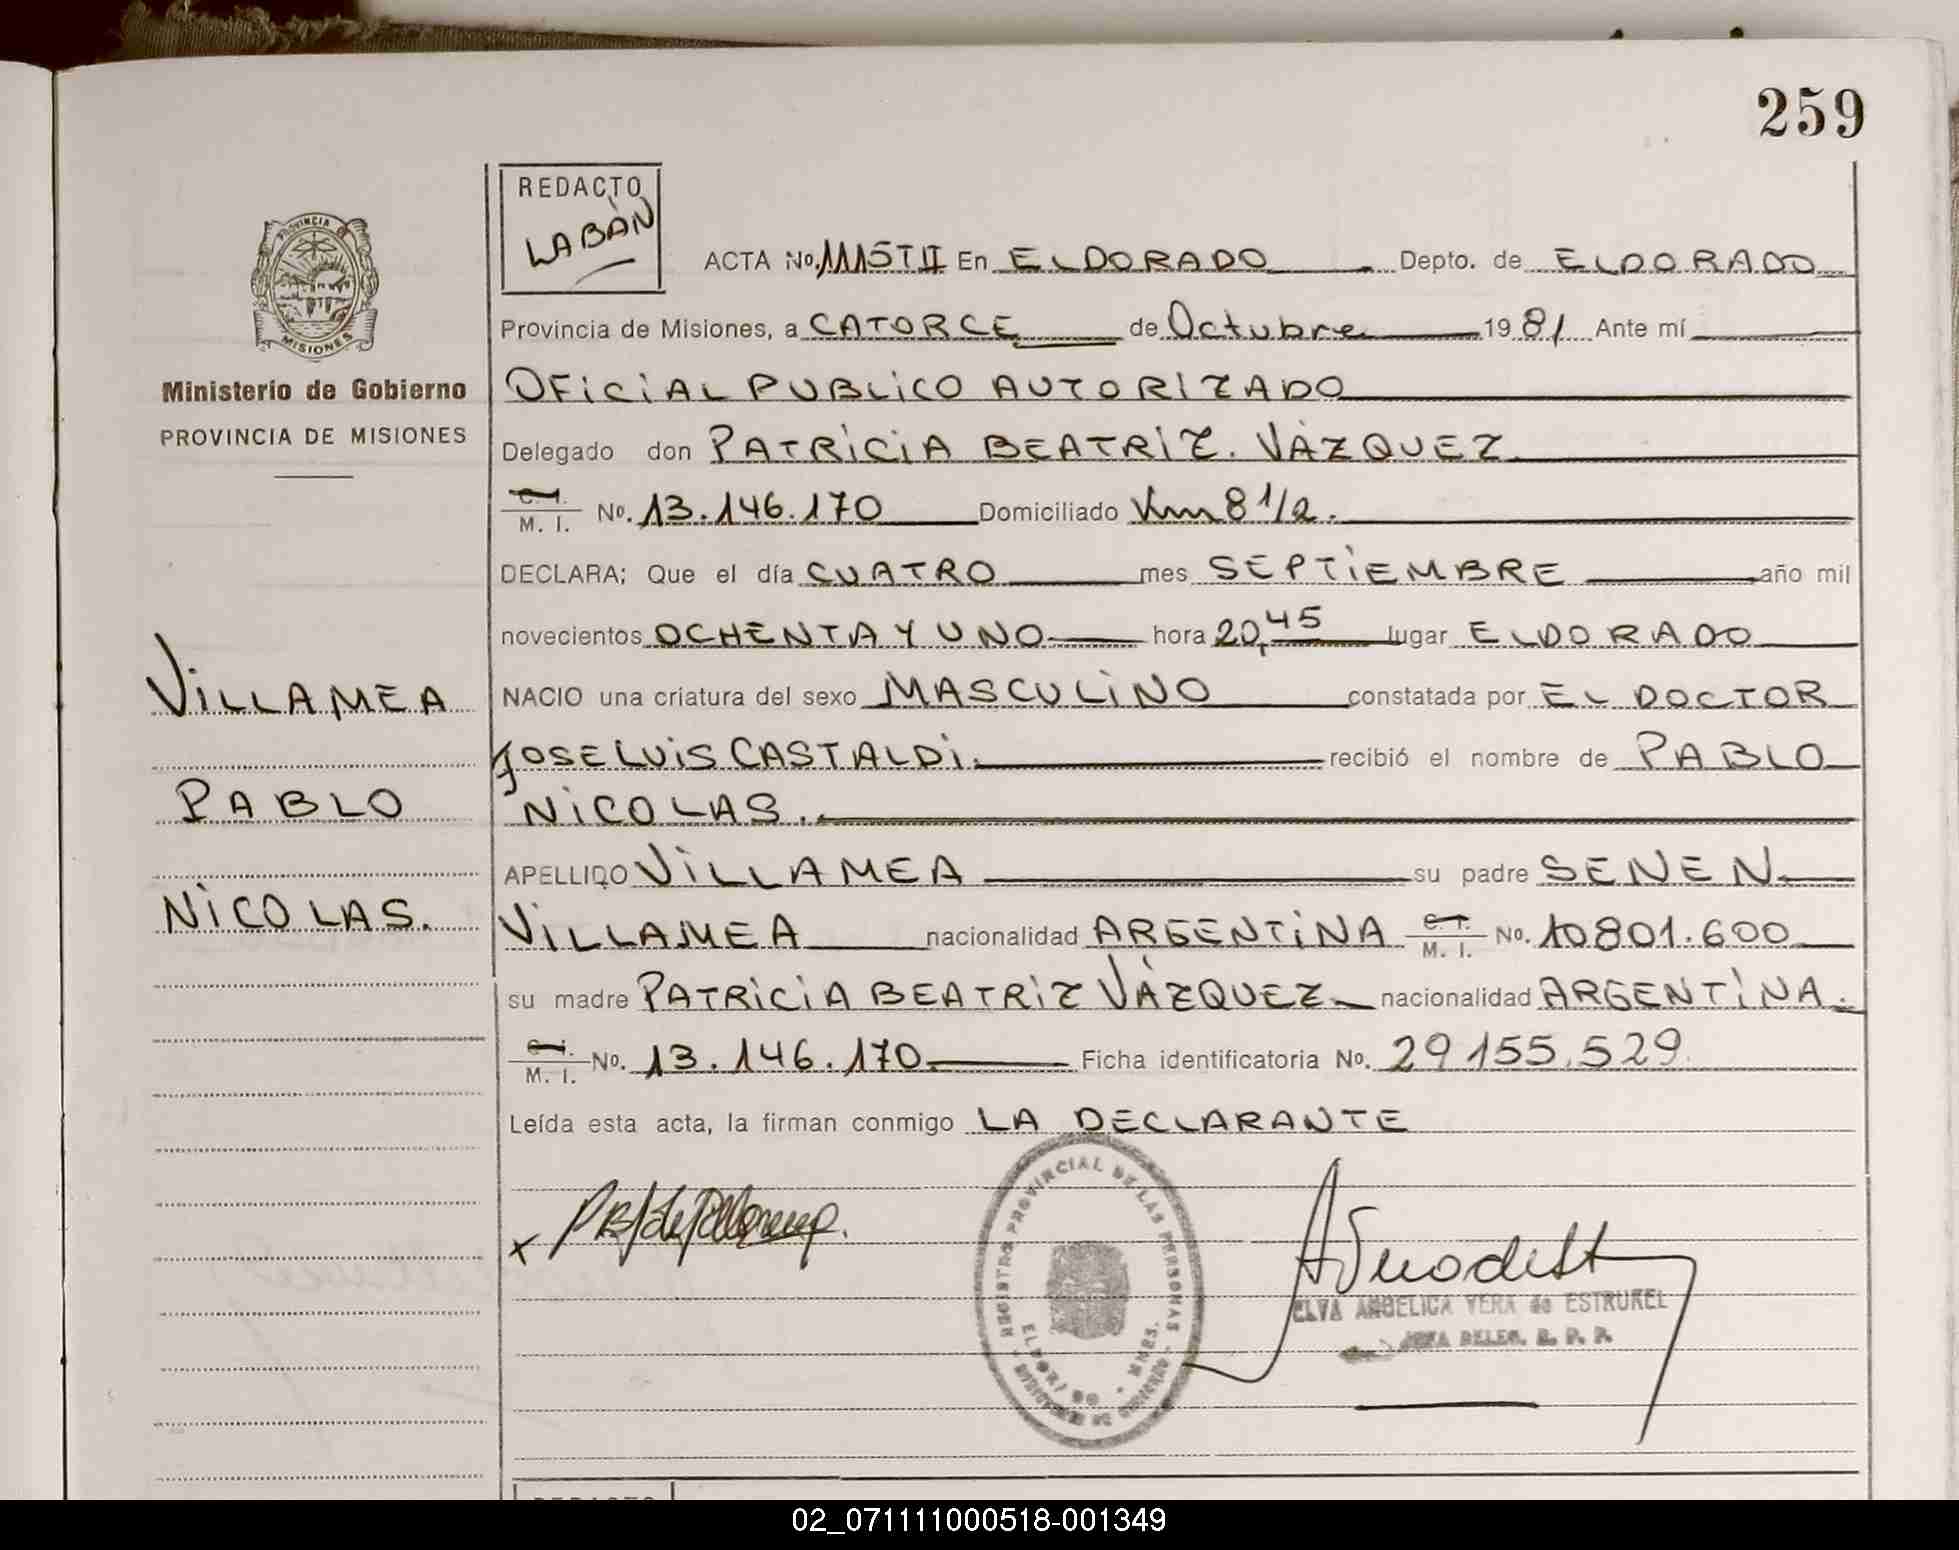 259
REDACTO
LABÁN
ACTA No. 1115 T II En ELDORADO Depto. de ELDORADO
Provincia de Misiones, a CATORCE de Octubre 1981 Ante mí
OFICIAL PUBLICO AUTORIZADO
Delegado don PATRICIA BEATRIZ. VÁZQUEZ
C. I. M. I. No. 13.146.170 Domiciliado Km 8 1/2.
DECLARA; Que el día CUATRO mes SEPTIEMBRE año mil
novecientos OCHENTA Y UNO hora 20,45 lugar ELDORADO
NACIO una criatura del sexo MASCULINO constatada por EL DOCTOR
JOSE LUIS CASTALDI. recibió el nombre de PABLO
NICOLAS.
APELLIDO VILLAMEA su padre SENEN
VILLAMEA nacionalidad ARGENTINA C. I. M. I. No. 10801.600
su madre PATRICIA BEATRIZ VÁZQUEZ nacionalidad ARGENTINA.
C. I. M. I. No. 13.146.170 Ficha identificatoria No. 29155.529
Leída esta acta, la firman conmigo LA DECLARANTE
PROVINCIA
MISIONES
Ministerio de Gobierno
PROVINCIA DE MISIONES
VILLAMEA
PABLO
NICOLAS.
REGISTRO PROVINCIAL DE LAS PERSONAS
ELDORADO - MNES.
ELVA ANGELICA VERA de ESTRUKEL
JEFA DELEG. R. P. P.
REDACTO
02_071111000518-001349